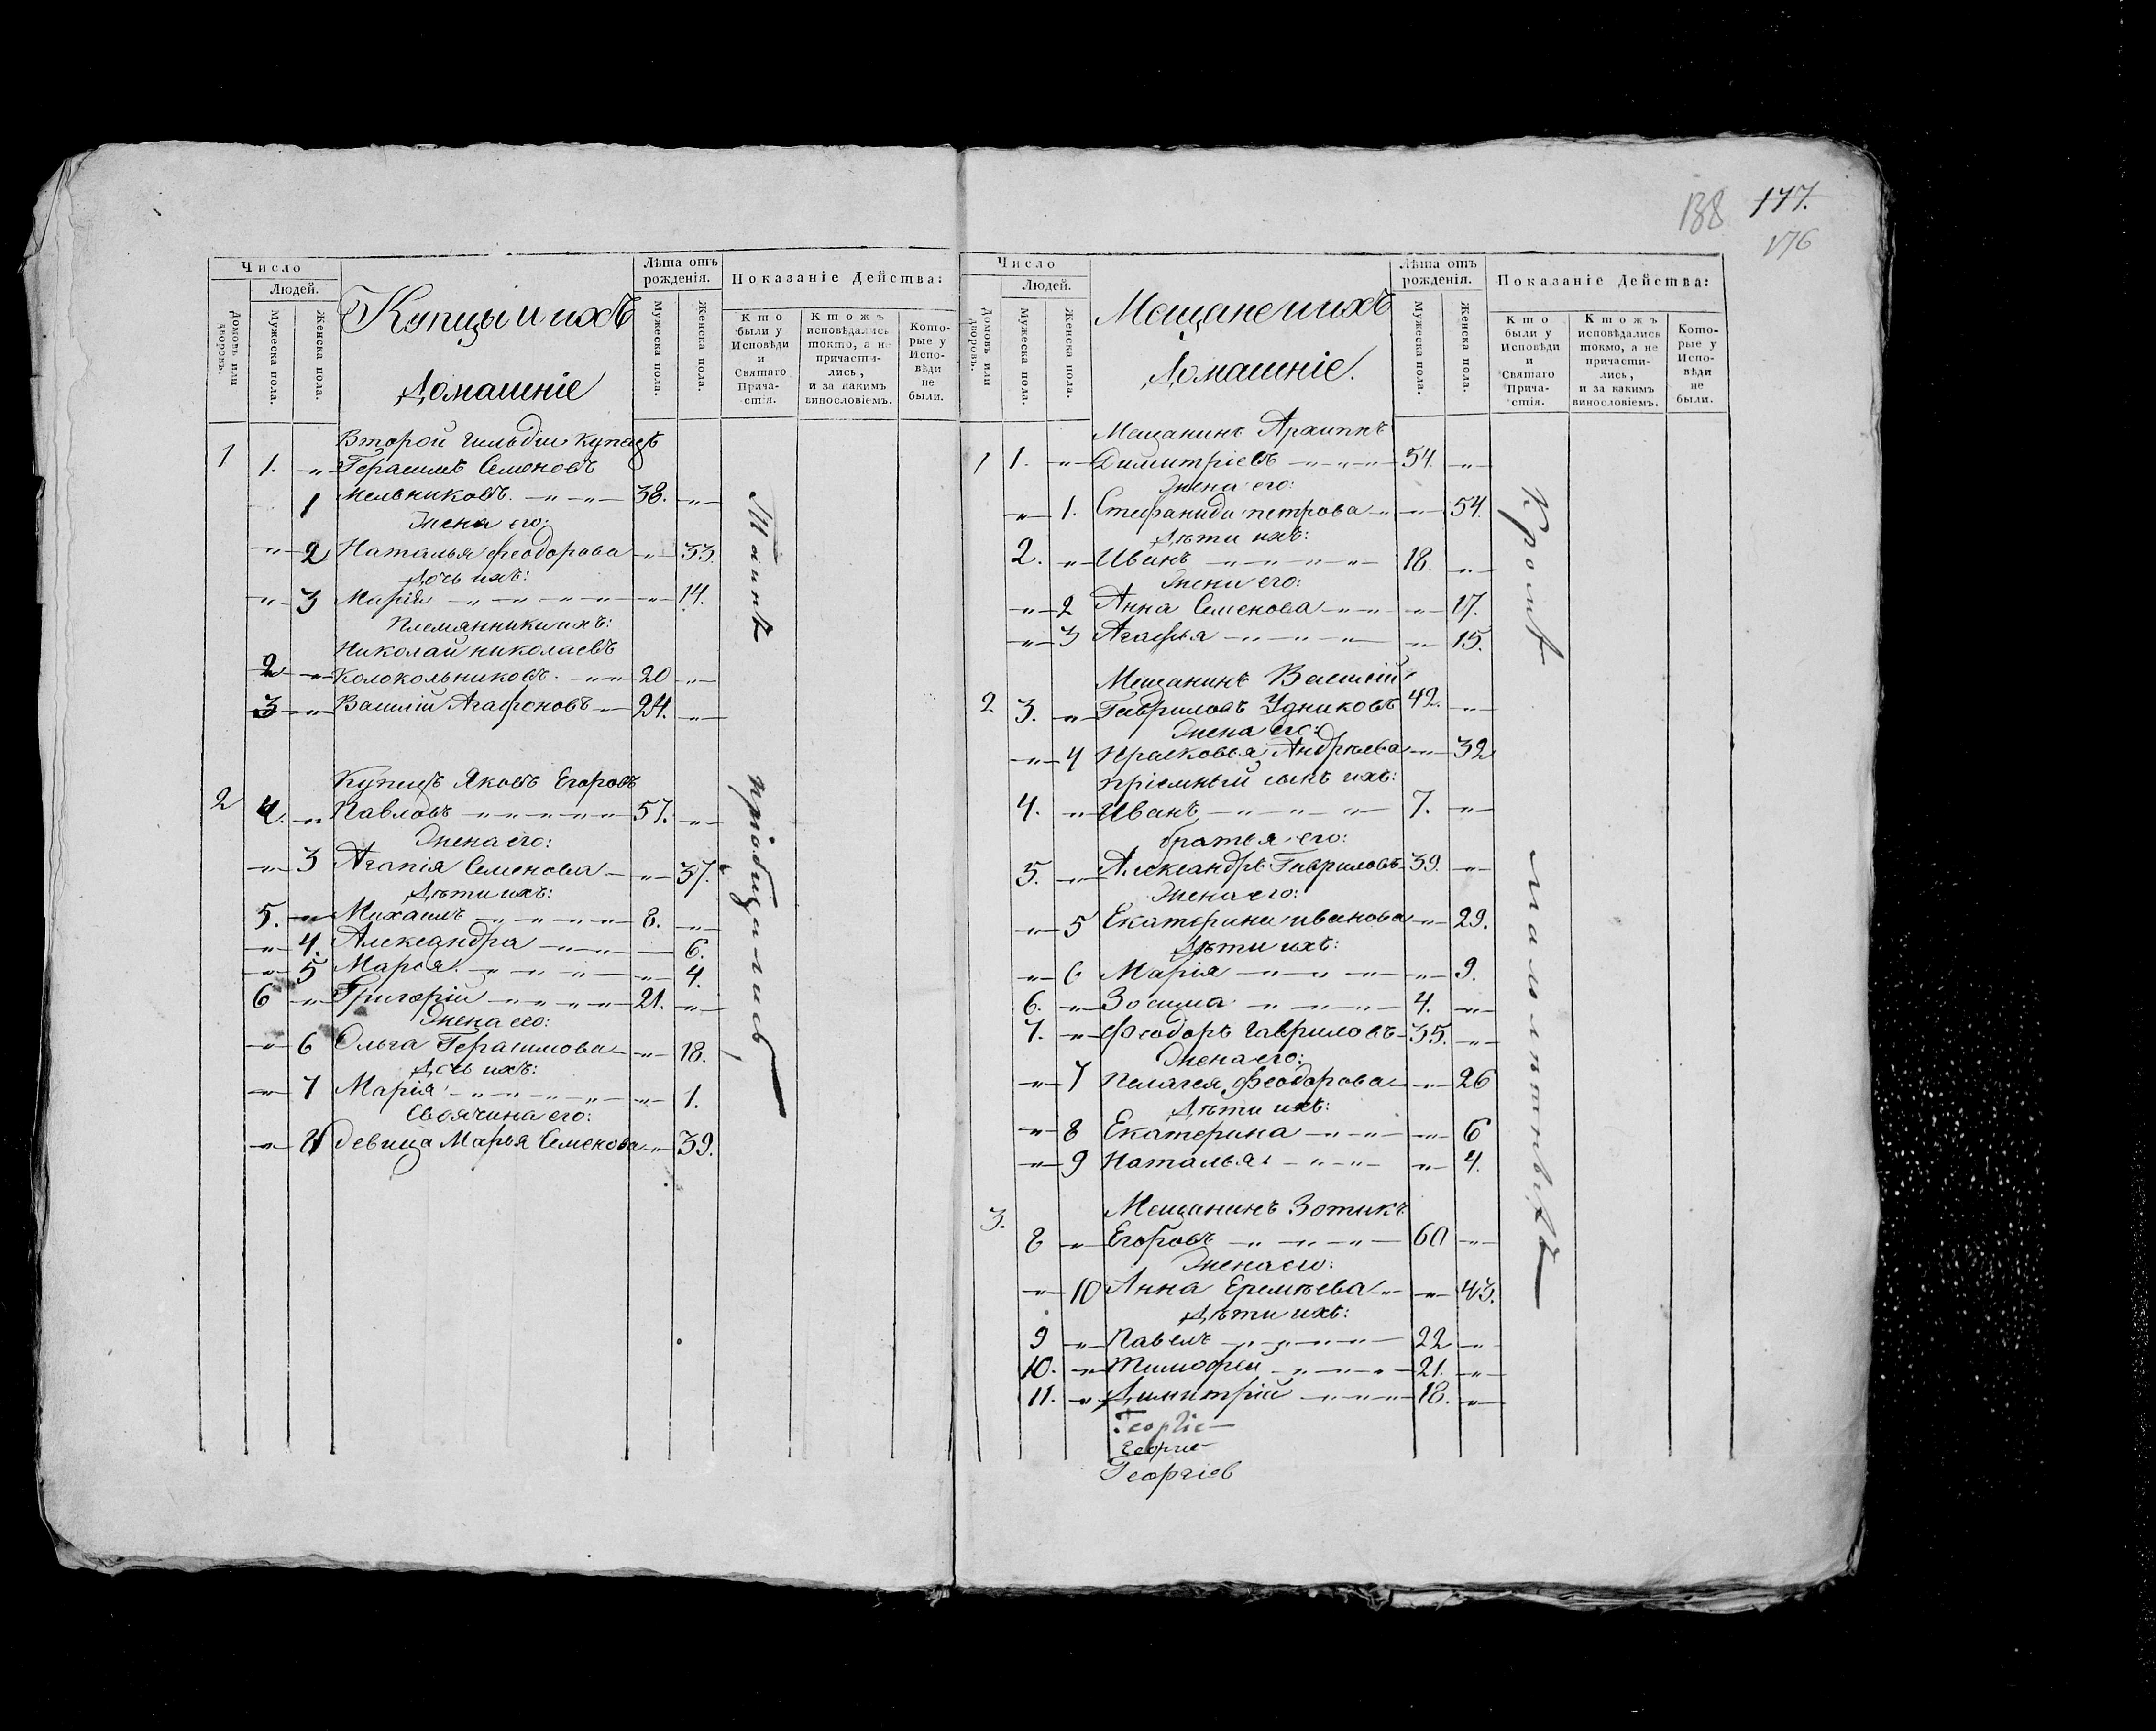 138 177.
176
Число
Людей.
Домовъ или дворовъ.
Мужеска пола.
Женска пола.
Купцы и ихъ
Домашніе
Лѣта отъ рожденія.
Мужеска пола.
Женска пола.
Показаніе Действа:
Кто были у Исповѣди и Святаго Прича-стія.
Ктожъ исповѣдались токмо, а не причасти-лись, и за какимъ винословіемъ.
Кото-рые у Испо-вѣди не были.
Второй гильдіи купецъ
1 1. -„- Герасимъ Семеновъ
1 Мельниковъ. -„- -„- 38. -„-
Жена его:
-„- 2 Наталья Феодорова -„- 33.
Дочь ихъ:
-„- 3 Марія -„- -„- -„- 14.
Племянники ихъ:
Николай Николаевъ
2 -„- Колокольниковъ. -„- 20 -„-
3 -„- Василій Агафоновъ -„- 24. -„-
Купецъ Яковъ Егоровъ
2 4. -„- Павловъ -„- -„- -„- 57. -„-
Жена его:
-„- 3 Агапія Семенова -„- 37.
Дѣти ихъ:
5. -„- Михаилъ -„- -„- 8. -„-
-„- 4. Александра -„- -„- 6.
-„- 5 Марья. -„- -„- -„- 4.
6 -„- Григорій -„- -„- 21. -„-
Жена его:
-„- 6 Ольга Герасимова -„- 18.
Дочь ихъ:
-„- 7 Марія -„- -„- -„- 1.
Своячина его:
-„- 8 девица Марья Семенова -„- 39.
пріобщались
Число
Людей.
Домовъ или дворовъ.
Мужеска пола.
Женска пола.
Мещане и ихъ
Домашніе.
Лѣта отъ рожденія.
Мужеска пола.
Женска пола.
Показаніе Действа:
Кто были у Исповѣди и Святаго Прича-стія.
Ктожъ исповѣдались токмо, а не причасти-лись, и за какимъ винословіемъ.
Кото-рые у Испо-вѣди не были.
Мещанинъ Архипъ
1 1. -„- Димитріевъ -„- -„- 54. -„-
Жена его:
-„- 1. Стефанида Петрова -„- 54.
Дѣти ихъ:
2. -„- Иванъ -„- -„- 18. -„-
Жена его:
-„- 2 Анна Семенова -„- -„- 17.
-„- 3 Агафья -„- -„- -„- 15.
Мещанинъ Василій
2 3. -„- Гавриловъ 42. -„-
Жена его:
-„- 4 Прасковья Андреева -„- 32
пріемный сынъ ихъ:
4. -„- Иванъ -„- -„- 7. -„-
братья его:
5. -„- Александръ Гавриловъ 39. -„-
Жена его:
-„- 5 Екатерина Иванова -„- 29.
Дѣти ихъ:
-„- 6 Марія -„- -„- -„- 9.
6. -„- Зосима -„- -„- 4. -„-
7. -„- Феодоръ Гавриловъ 35. -„-
Жена его:
-„- 7 Пелагея Феодорова -„- 26
Дѣти ихъ:
-„- 8 Екатерина -„- -„- 6
-„- 9 Наталья -„- -„- 4.
Мещанинъ Зотикъ
3. 8 -„- Егоровъ -„- -„- 60 -„-
Жена его:
-„- 10 Анна Еремѣева -„- -„- 43.
Дѣти ихъ:
9 -„- Павелъ -„- -„- 22 -„-
10. -„- Тимофей -„- -„- 21. -„-
11. -„- Димитрій -„- -„- 18. -„-
Георгіе
Георгіе
Георгіев
Кромѣ малолѣтныхъ